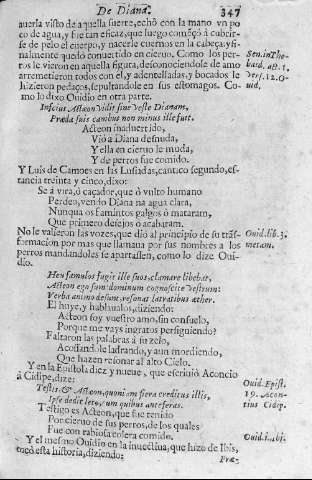 De Diana. 347
auerla visto de aquella suerte, echó con la mano vn po
co de agua, y fue tan eficaz, que luego començó à cubrir-
se de pelo el cuerpo, y nacerle cuernos en la cabeça y fi-
nalmente quedó conuertido en cieruo. Como los per-
ros le vieron en aquella figura, desconociendole de amo
arremetieron todos con el, y adentelladas, y bocados le
hizieron pedaços, sepultandole en sus estomagos. Co-
mo lo dixo Ouidio en otra parte.
Sen. in The-
baid. act. 1.
vers. 12. O-
uid.
Inscius Actæon vidit sine veste Dianam,
Præda suis canibus non minus ille fuit.
Acteon inaduertido,
Vió a Diana desnuda,
Y ella en cieruo le muda,
Y de perros fue comido.
Y Luis de Camoes en las Lusiadas, cantico segundo, es-
tancia treinta y cinco, dixo:
Se á vira, ó caçador, que ó vulto humano
Perdeu, vendo Diana na agua clara,
Nunqua os famintos galgos ó mataram,
Que primero desejos ó acabaram.
No le valieron las vozes, que dió al principio de su trãs-
formacion por mas que llamaua por sus nombres a los
perros mandandoles se apartassen, como lo dize Oui-
dio.
Ouid. lib. 3.
metam.
Heu famulos fugit ille suos, clamare libebat,
Actæon ego sum: dominum cognoscite vestrum:
Verba animo desunt, resonat latratibus æther.
El huye, y hablaualos, diziendo:
Acteon soy vuestro amo, sin consuelo,
Porque me vays ingratos persiguiendo?
Faltaron las palabras á su zelo,
Acossandole ladrando, y aun mordiendo,
Que hazen resonar al alto Cielo.
Y en la Epistola diez y nueue, que escriuió Aconcio
á Cidipe, dize:
Ouid. Epist.
19. Acon-
tius Cidip.
Testis & Actæon, quoniam fiera creditus illis,
Ipse dedit leto, cum quibus ante feras.
Testigo es Acteon, que fue tenido
Por cieruo de sus perros, de los quales
Fue con rabiosa colera comido.
Y el mesmo Ouidio en la inuectiua, que hizo de Ibis,
tocó esta historia, diziendo:
Ouid. in ibi.
Præ-